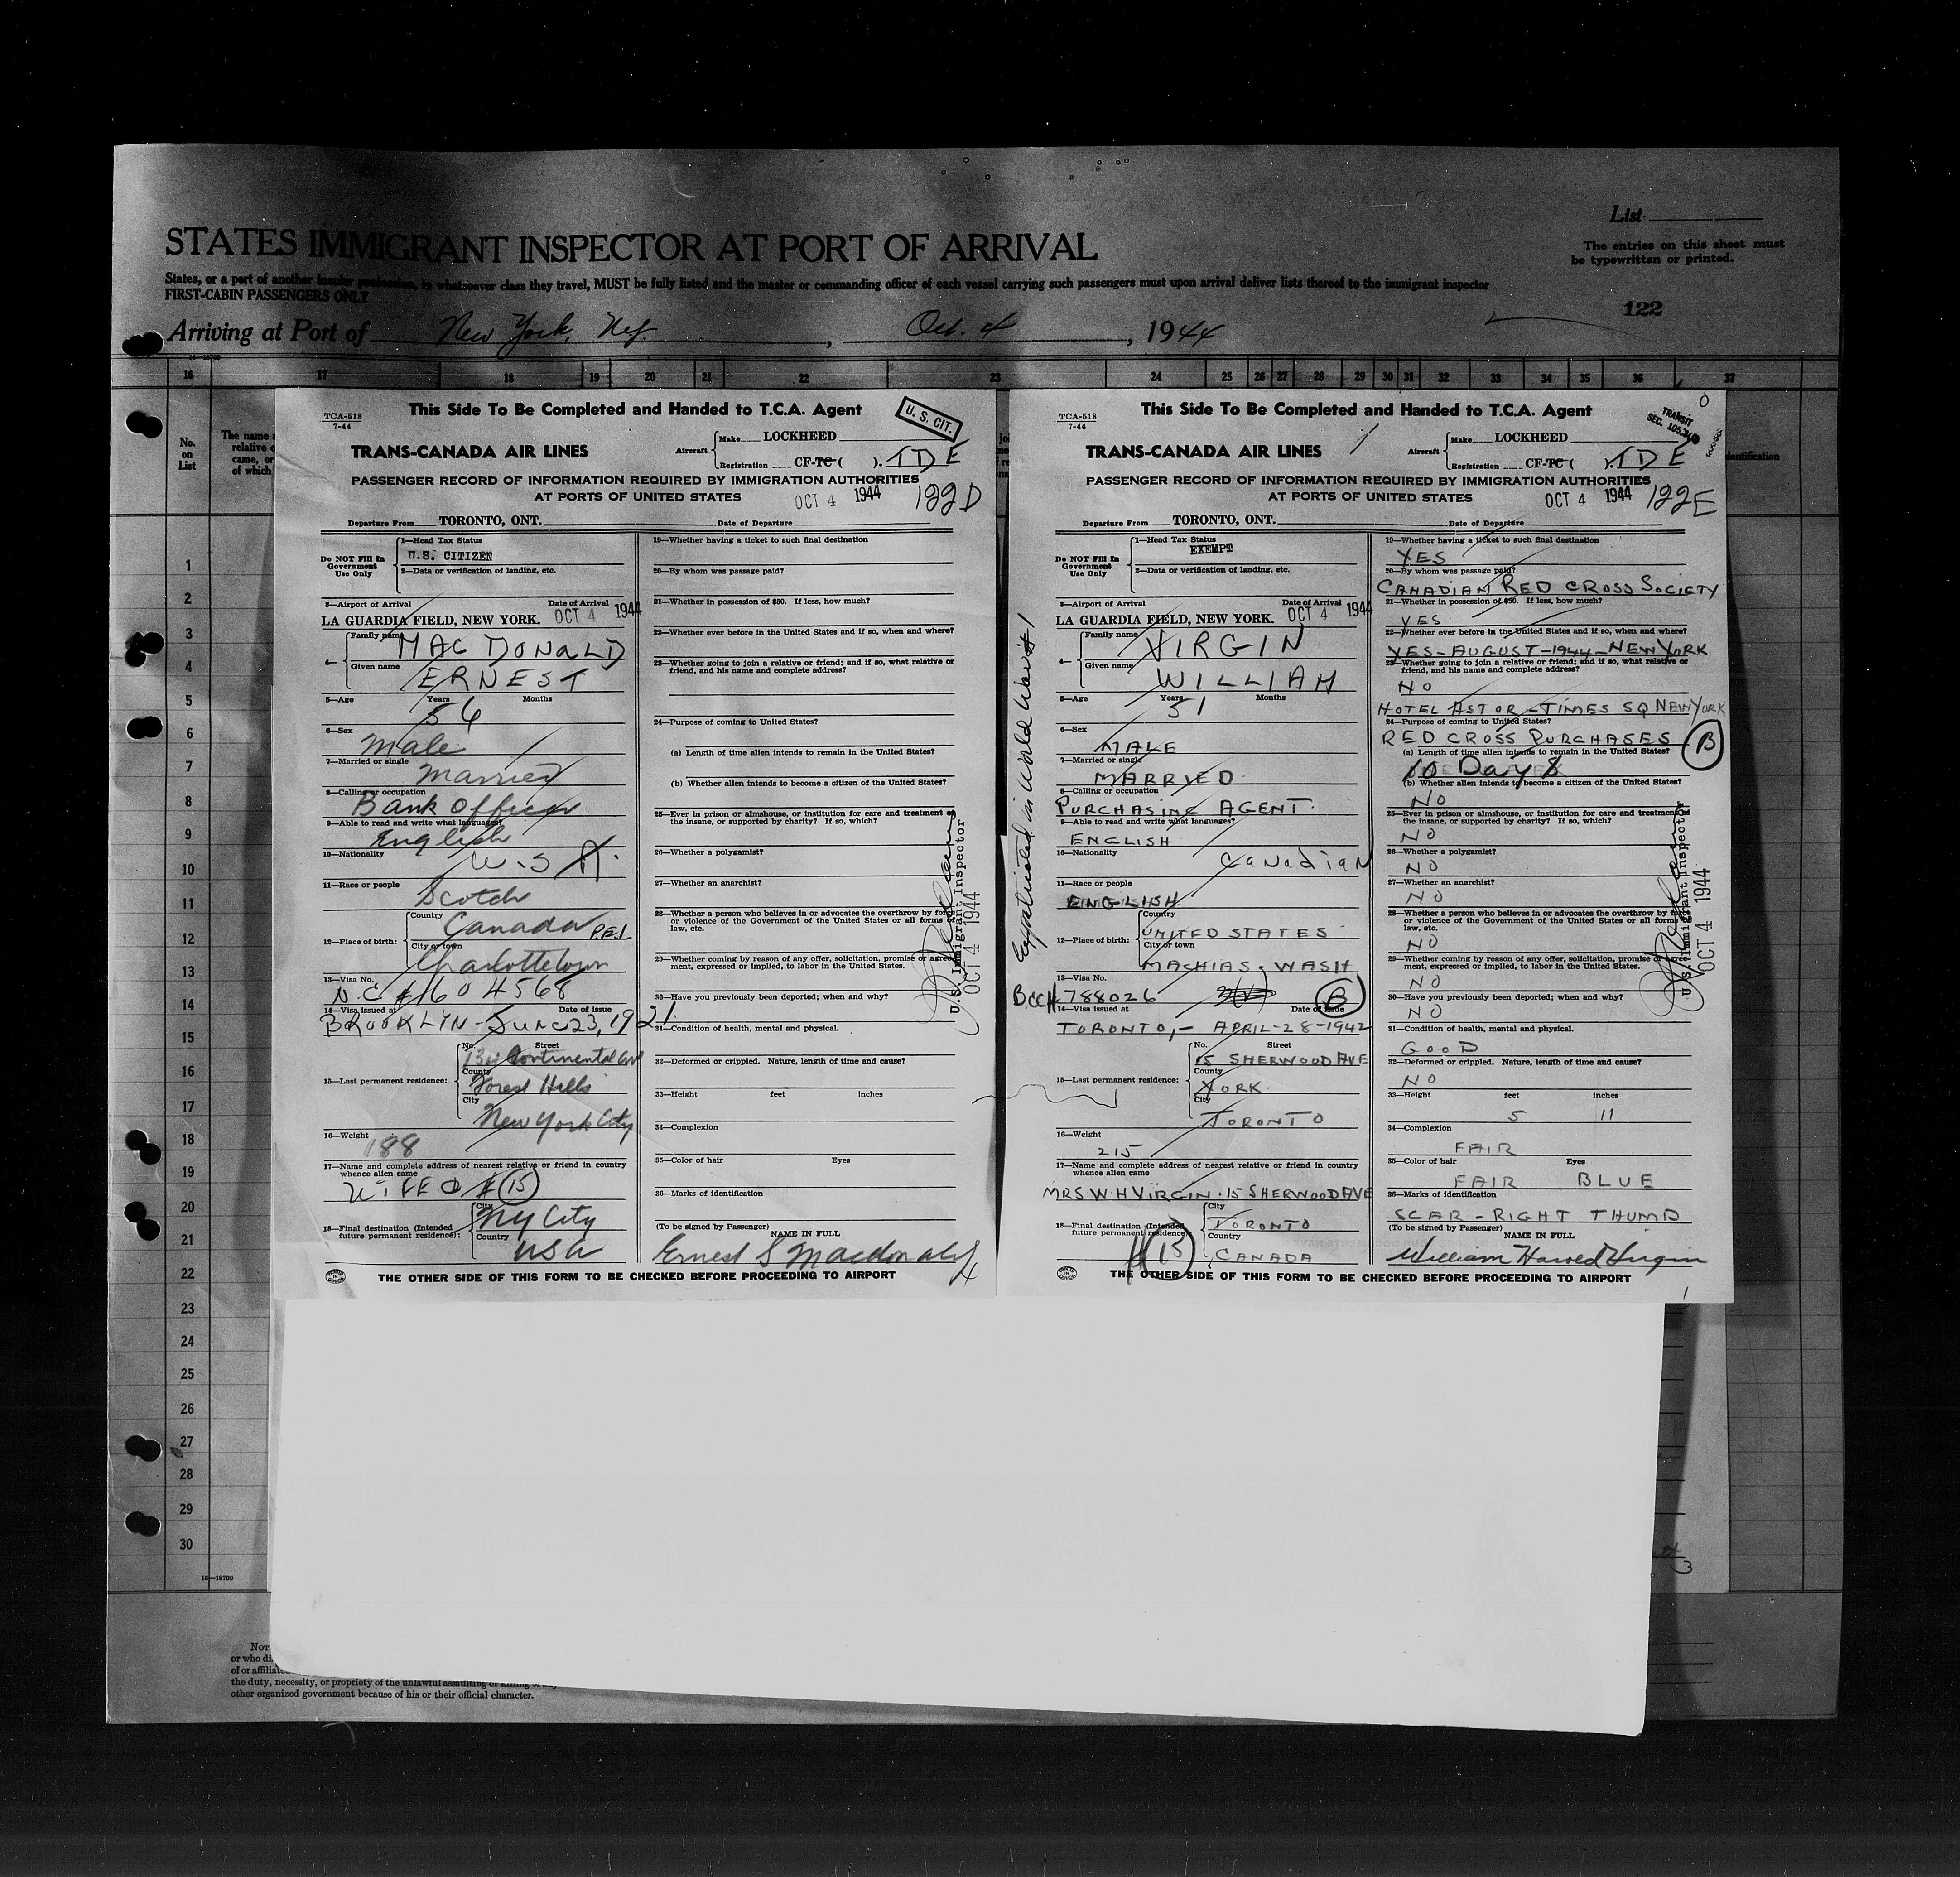 List
The entries on this sheet must
be typewritten or printed.
STATES IMMIGRANT INSPECTOR AT PORT OF ARRIVAL
States, or a port of another insular possession, in whatsoever class they travel, MUST be fully listed and the master or commanding officer of each vessel carrying such passengers must upon arrival deliver lists thereof to the immigrant inspector
FIRST-CABIN PASSENGERS ONLY
122
Arriving at Port of New York, NY. , Oct. 4 , 1944
16 17 18 19 20 21 22 23 24 25 26 27 28 29 30 31 32 33 34 35 36 37
No.
on
List
The name a
relative o
came, or
of which
dentification
1
2
3
4
5
6
7
8
9
10
11
12
13
14
15
16
17
18
19
20
21
22
23
24
25
26
27
28
29
30
16—18709
TCA-518
7-44
This Side To Be Completed and Handed to T.C.A. Agent
U. S. CIT.
TRANS-CANADA AIR LINES
Aircraft
Make LOCKHEED
Registration CF-TC ( ). TDE
PASSENGER RECORD OF INFORMATION REQUIRED BY IMMIGRATION AUTHORITIES
AT PORTS OF UNITED STATES
OCT 4 1944
122D
Departure From TORONTO, ONT. Date of Departure
Do NOT Fill In
Government
Use Only
1—Head Tax Status
U.S. CITIZEN
2—Data or verification of landing, etc.
3—Airport of Arrival Date of Arrival
LA GUARDIA FIELD, NEW YORK. OCT 4 1944
4—
Family name MAC DONALD
Given name
ERNEST
5—Age Years Months
56
6—Sex
Male
7—Married or single
Married
8—Calling or occupation
Bank Officer
9—Able to read and write what languages?
English
10—Nationality
U.S.A.
11—Race or people
Scotch
12—Place of birth:
Country
Canada P.E.I.
City or town
Charlottetown
13—Visa No.
N.C # 1604568
14—Visa issued at Date of issue
BROOKLYN - June 23, 1921.
15—Last permanent residence:
No. Street
Continental
County
Forest Hills
City
New York City
16—Weight
188
17—Name and complete address of nearest relative or friend in country
whence alien came
WIFE @ # 15
18—Final destination (Intended
future permanent residence):
City
NY City
Country
USA
19—Whether having a ticket to such final destination
20—By whom was passage paid?
21—Whether in possession of $50. If less, how much?
22—Whether ever before in the United States and if so, when and where?
23—Whether going to join a relative or friend; and if so, what relative or
friend, and his name and complete address?
24—Purpose of coming to United States?
(a) Length of time alien intends to remain in the United States?
(b) Whether alien intends to become a citizen of the United States?
25—Ever in prison or almshouse, or institution for care and treatment of
the insane, or supported by charity? If so, which?
26—Whether a polygamist?
27—Whether an anarchist?
28—Whether a person who believes in or advocates the overthrow by force
or violence of the Government of the United States or all forms of
law, etc.
29—Whether coming by reason of any offer, solicitation, promise or agree-
ment, expressed or implied, to labor in the United States.
30—Have you previously been deported; when and why?
31—Condition of health, mental and physical.
32—Deformed or crippled. Nature, length of time and cause?
33—Height feet inches
34—Complexion
35—Color of hair Eyes
36—Marks of identification
(To be signed by Passenger)
NAME IN FULL
Ernest S Macdonald
U.S. Immigrant Inspector
OCT 4 1944
THE OTHER SIDE OF THIS FORM TO BE CHECKED BEFORE PROCEEDING TO AIRPORT
TCA-518
7-44
This Side To Be Completed and Handed to T.C.A. Agent
TRANSIT
SEC. 105.3
TRANS-CANADA AIR LINES
Aircraft
Make LOCKHEED
Registration CF-TC ( ). TDE
PASSENGER RECORD OF INFORMATION REQUIRED BY IMMIGRATION AUTHORITIES
AT PORTS OF UNITED STATES
OCT 4 1944
122E
Departure From TORONTO, ONT. Date of Departure
Expatriated in World War #1
Do NOT Fill In
Government
Use Only
1—Head Tax Status
EXEMPT
2—Data or verification of landing, etc.
3—Airport of Arrival Date of Arrival
LA GUARDIA FIELD, NEW YORK. OCT 4 1944
4—
Family name VIRGIN
Given name
WILLIAM
5—Age Years Months
51
6—Sex
MALE
7—Married or single
MARRIED
8—Calling or occupation
PURCHASING AGENT.
9—Able to read and write what languages?
ENGLISH
10—Nationality
Canadian
11—Race or people
ENGLISH
12—Place of birth:
Country
UNITED STATES
City or town
MACHIAS. WASH
13—Visa No.
BCCH 788026 B
14—Visa issued at Date of issue
TORONTO,- APRIL-28-1942
15—Last permanent residence:
No. Street
15 SHERWOOD AVE
County
YORK.
City
TORONTO
16—Weight
215
17—Name and complete address of nearest relative or friend in country
whence alien came
MRS W.H VIRGIN. 15 SHERWOOD AVE
18—Final destination (Intended
future permanent residence):
# 15
City
TORONTO
Country
CANADA
19—Whether having a ticket to such final destination
YES
20—By whom was passage paid?
CANADIAN RED CROSS SOCIETY
21—Whether in possession of $50. If less, how much?
YES
22—Whether ever before in the United States and if so, when and where?
YES-AUGUST-1944-NEW YORK
23—Whether going to join a relative or friend; and if so, what relative or
friend, and his name and complete address?
NO
HOTEL ASTOR-TIMES SQ NEW YORK
24—Purpose of coming to United States?
RED CROSS PURCHASES B
(a) Length of time alien intends to remain in the United States?
10 Days
(b) Whether alien intends to become a citizen of the United States?
NO
25—Ever in prison or almshouse, or institution for care and treatment of
the insane, or supported by charity? If so, which?
NO
26—Whether a polygamist?
NO
27—Whether an anarchist?
NO
28—Whether a person who believes in or advocates the overthrow by force
or violence of the Government of the United States or all forms of
law, etc.
NO
29—Whether coming by reason of any offer, solicitation, promise or agree-
ment, expressed or implied, to labor in the United States.
NO
30—Have you previously been deported; when and why?
NO
31—Condition of health, mental and physical.
GOOD
32—Deformed or crippled. Nature, length of time and cause?
NO
33—Height feet inches
5 11
34—Complexion
FAIR
35—Color of hair Eyes
FAIR BLUE
36—Marks of identification
SCAR - RIGHT THUMB
(To be signed by Passenger)
NAME IN FULL
William Harold Virgin
U.S. Immigrant Inspector
OCT 4 1944
THE OTHER SIDE OF THIS FORM TO BE CHECKED BEFORE PROCEEDING TO AIRPORT
or who di
of or affiliate
the duty, necessity, or propriety of the unlawful assaulting or killing of
other organized government because of his or their official character.